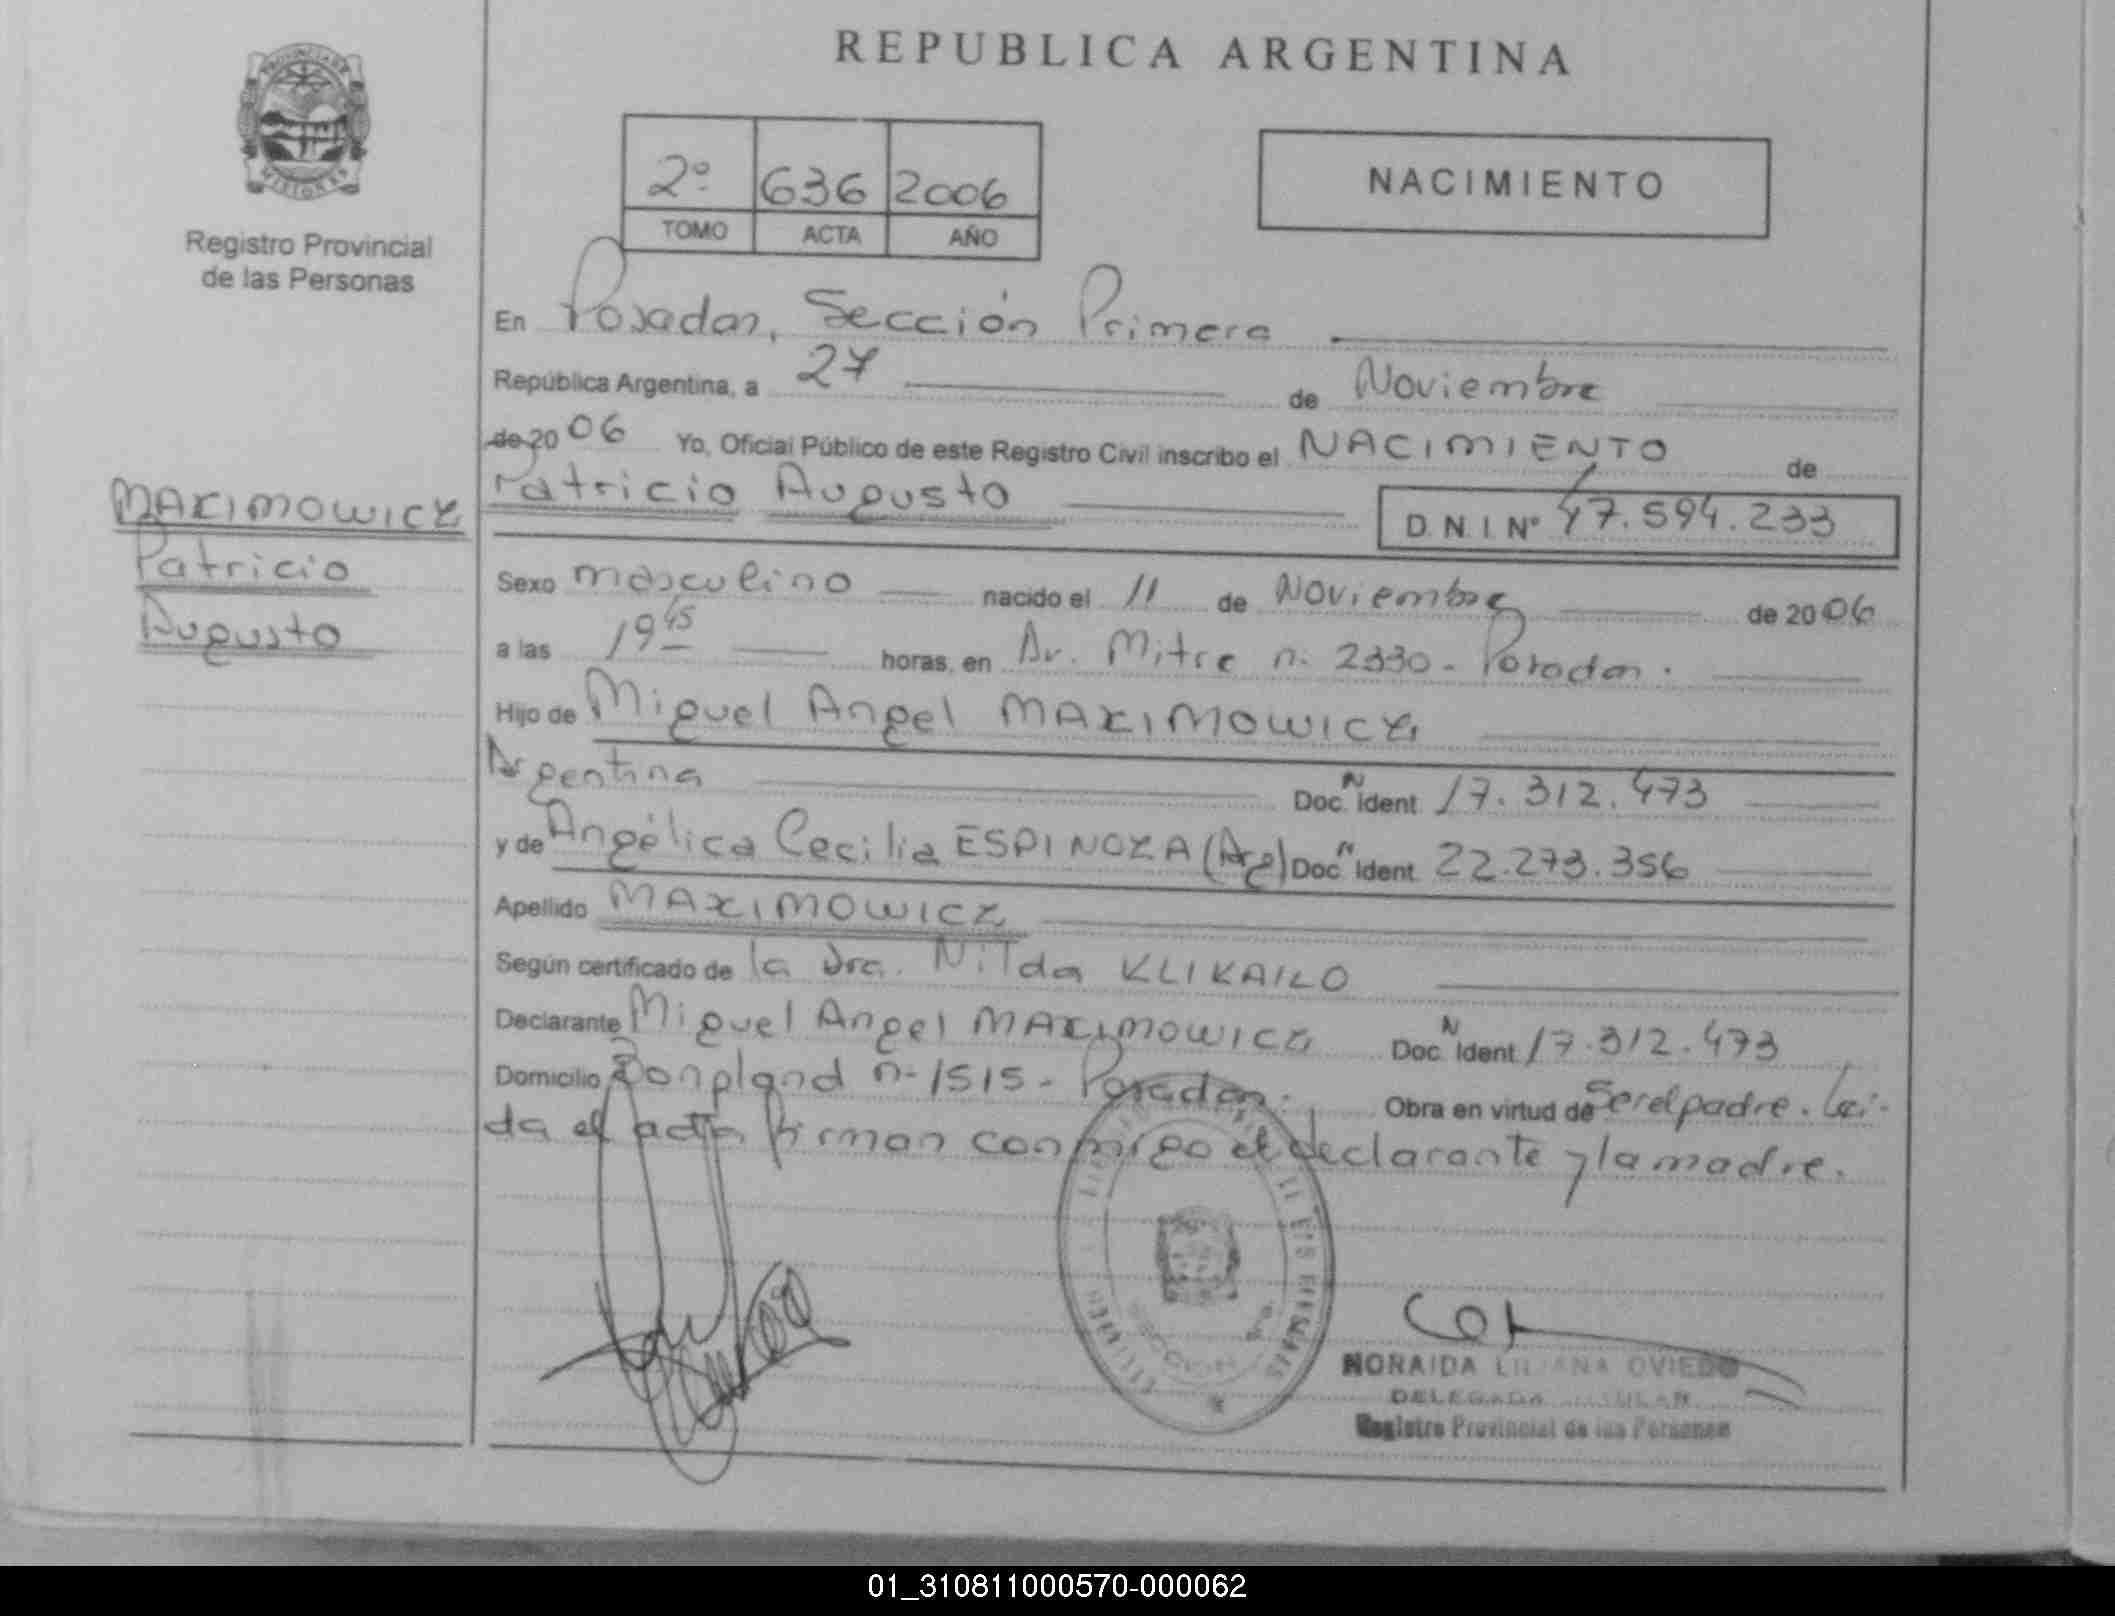 REPUBLICA ARGENTINA
PROVINCIA DE
MISIONES
Registro Provincial
de las Personas
2º 636 2006
TOMO ACTA AÑO
NACIMIENTO
En Posadas, Sección Primera
República Argentina, a 27 de Noviembre
de 2006 Yo, Oficial Público de este Registro Civil inscribo el NACIMIENTO de
Patricio Augusto D.N.I. Nº 47.594.233
MAXIMOWICZ
Patricio
Augusto
Sexo masculino nacido el 11 de Noviembre de 2006
a las 19 45 horas, en Av. Mitre n. 2330 - Posadas.
Hijo de Miguel Angel MAXIMOWICZ
Argentina Doc. N Ident 17.312.473
y de Angélica Cecilia ESPINOZA (Arg) Doc. N Ident. 22.273.356
Apellido MAXIMOWICZ
Según certificado de la Dra. Nilda KLIKAILO
Declarante Miguel Angel MAXIMOWICZ Doc. N Ident 17.312.473
Domicilio Bonpland n-1515- Posadas. Obra en virtud de Ser el padre. Lei-
da el acta firman conmigo el declarante y la madre.
SECCION 1ra.
NORAIDA LILIANA OVIEDO
DELEGADA TITULAR
Registro Provincial de las Personas
01_310811000570-000062